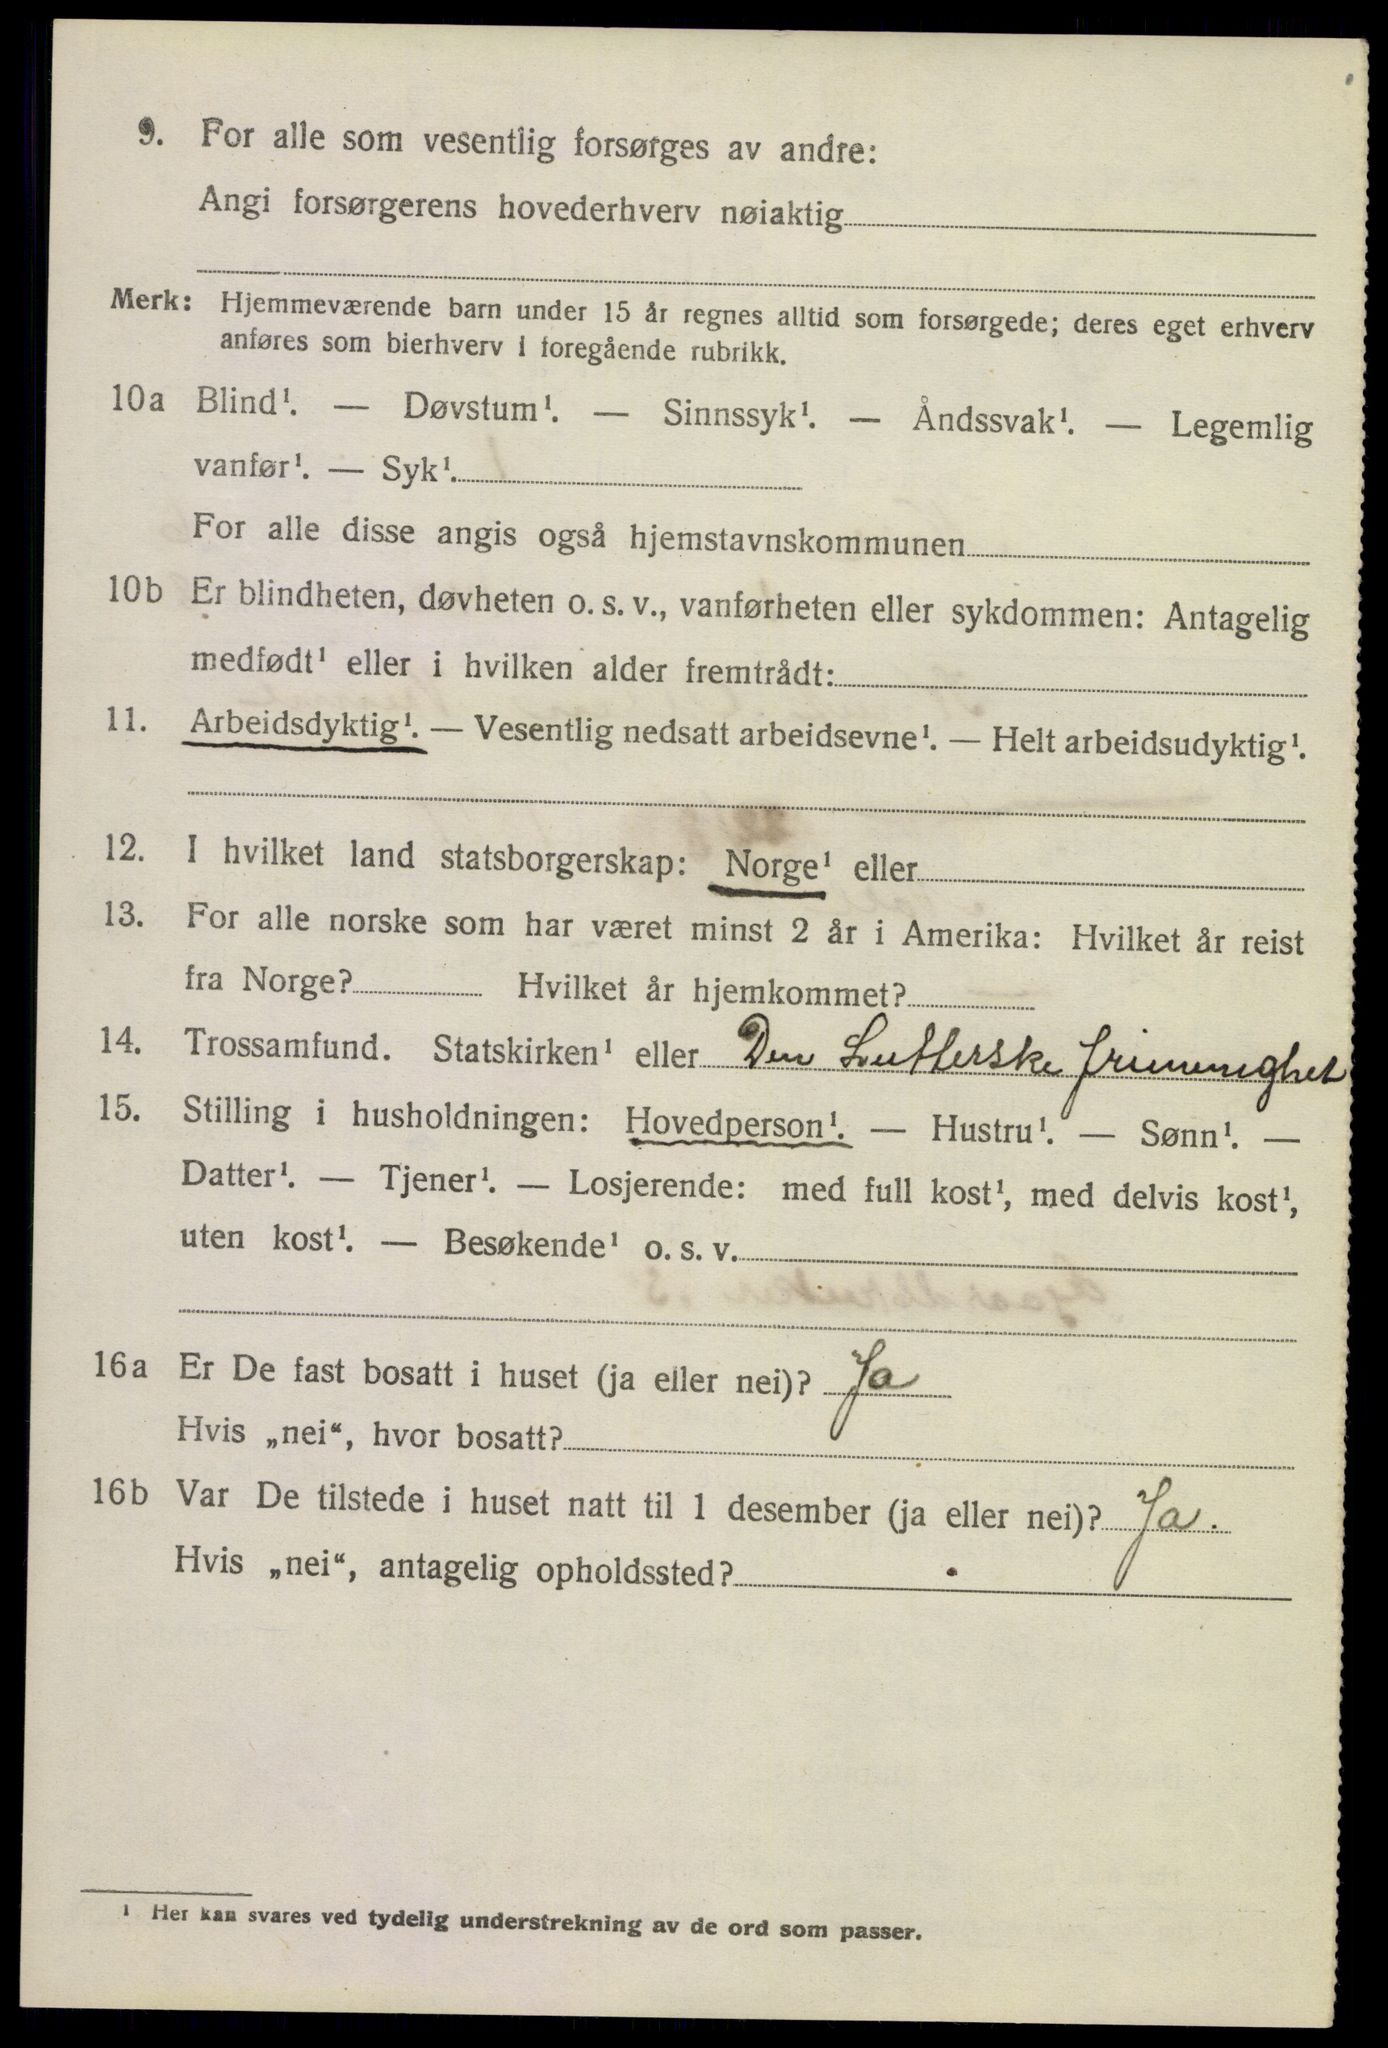 9. For alle som vesentlig forsørges av andre:
Angi forsørgerens hovederhverv nøiaktig
Merk: Hjemmeværende barn under 15 år regnes alltid som forsørgede; deres eget erhverv
anføres som bierhverv i foregående rubrikk.
10a Blind¹. — Døvstum¹. — Sinnssyk¹. — Åndssvak¹. — Legemlig
vanfør¹. — Syk¹.
For alle disse angis også hjemstavnskommunen
10b Er blindheten, døvheten o. s. v., vanførheten eller sykdommen: Antagelig
medfødt¹ eller i hvilken alder fremtrådt:
11. Arbeidsdyktig¹. — Vesentlig nedsatt arbeidsevne¹. — Helt arbeidsudyktig¹.
12. I hvilket land statsborgerskap: Norge¹ eller
13. For alle norske som har været minst 2 år i Amerika: Hvilket år reist
fra Norge? Hvilket år hjemkommet?
14. Trossamfund. Statskirken¹ eller Den Lutherske frimenighet
15. Stilling i husholdningen: Hovedperson¹. — Hustru¹. — Sønn¹. —
Datter¹. — Tjener¹. — Losjerende: med full kost¹, med delvis kost¹,
uten kost¹. — Besøkende¹ o. s. v.
16a Er De fast bosatt i huset (ja eller nei)? Ja
Hvis „nei“, hvor bosatt?
16b Var De tilstede i huset natt til 1 desember (ja eller nei)? Ja.
Hvis „nei“, antagelig opholdssted?
¹ Her kan svares ved tydelig understrekning av de ord som passer.